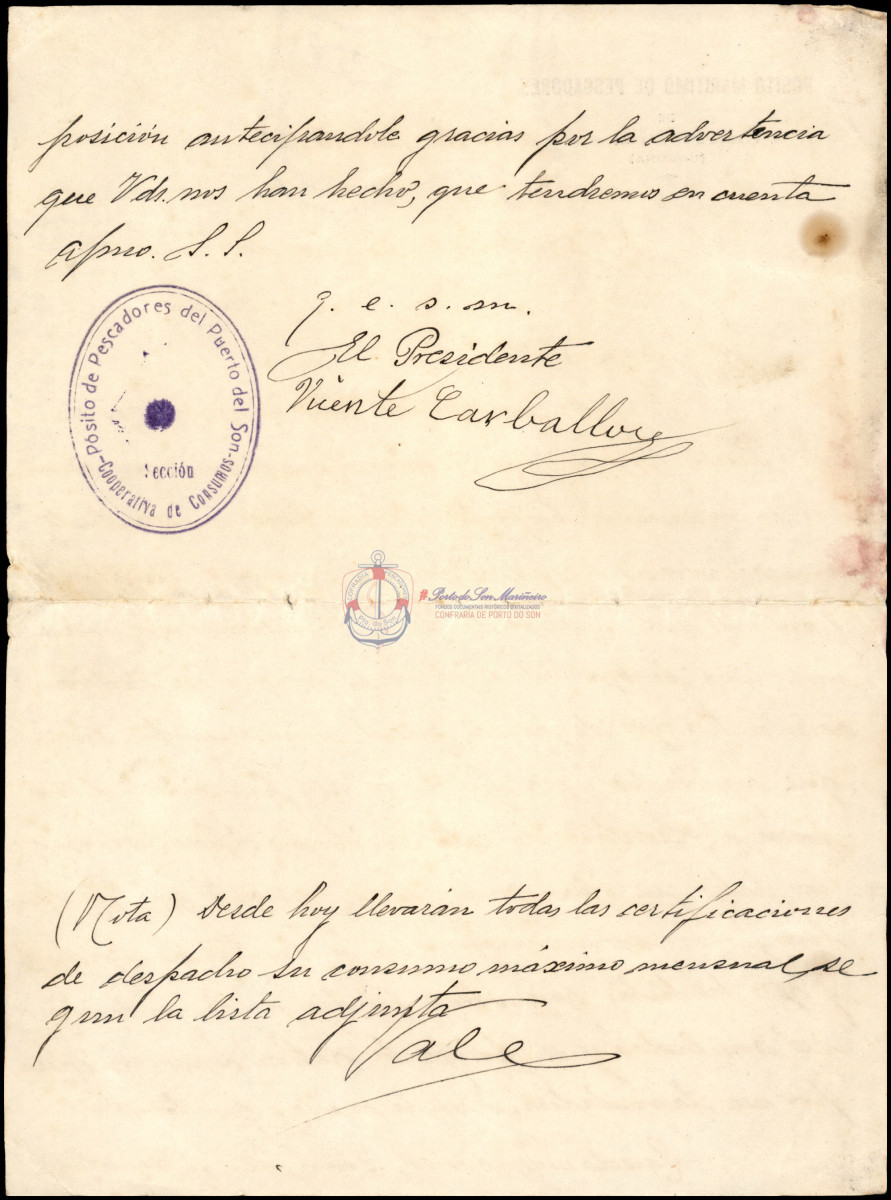 posición antecipandole gracias por la advertencia
que Vds. nos han hecho, que tendremos en cuenta
afmo. S. S.
q. e. s. m.
El Presidente
Vicente Carballo
Pósito de Pescadores del Puerto del Son
Sección
-Cooperativa de Consumos-
CONFRARÍA
Pto. do Son
#PortodoSon Mariñeiro
FONDOS DOCUMENTAIS HISTÓRICOS DIXITALIZADOS
CONFRARÍA DE PORTO DO SON
(Nota) Desde hoy llevarán todas las certificaciones
de despacho su consumo máximo mensual, se
gun la lista adjunta
Vale